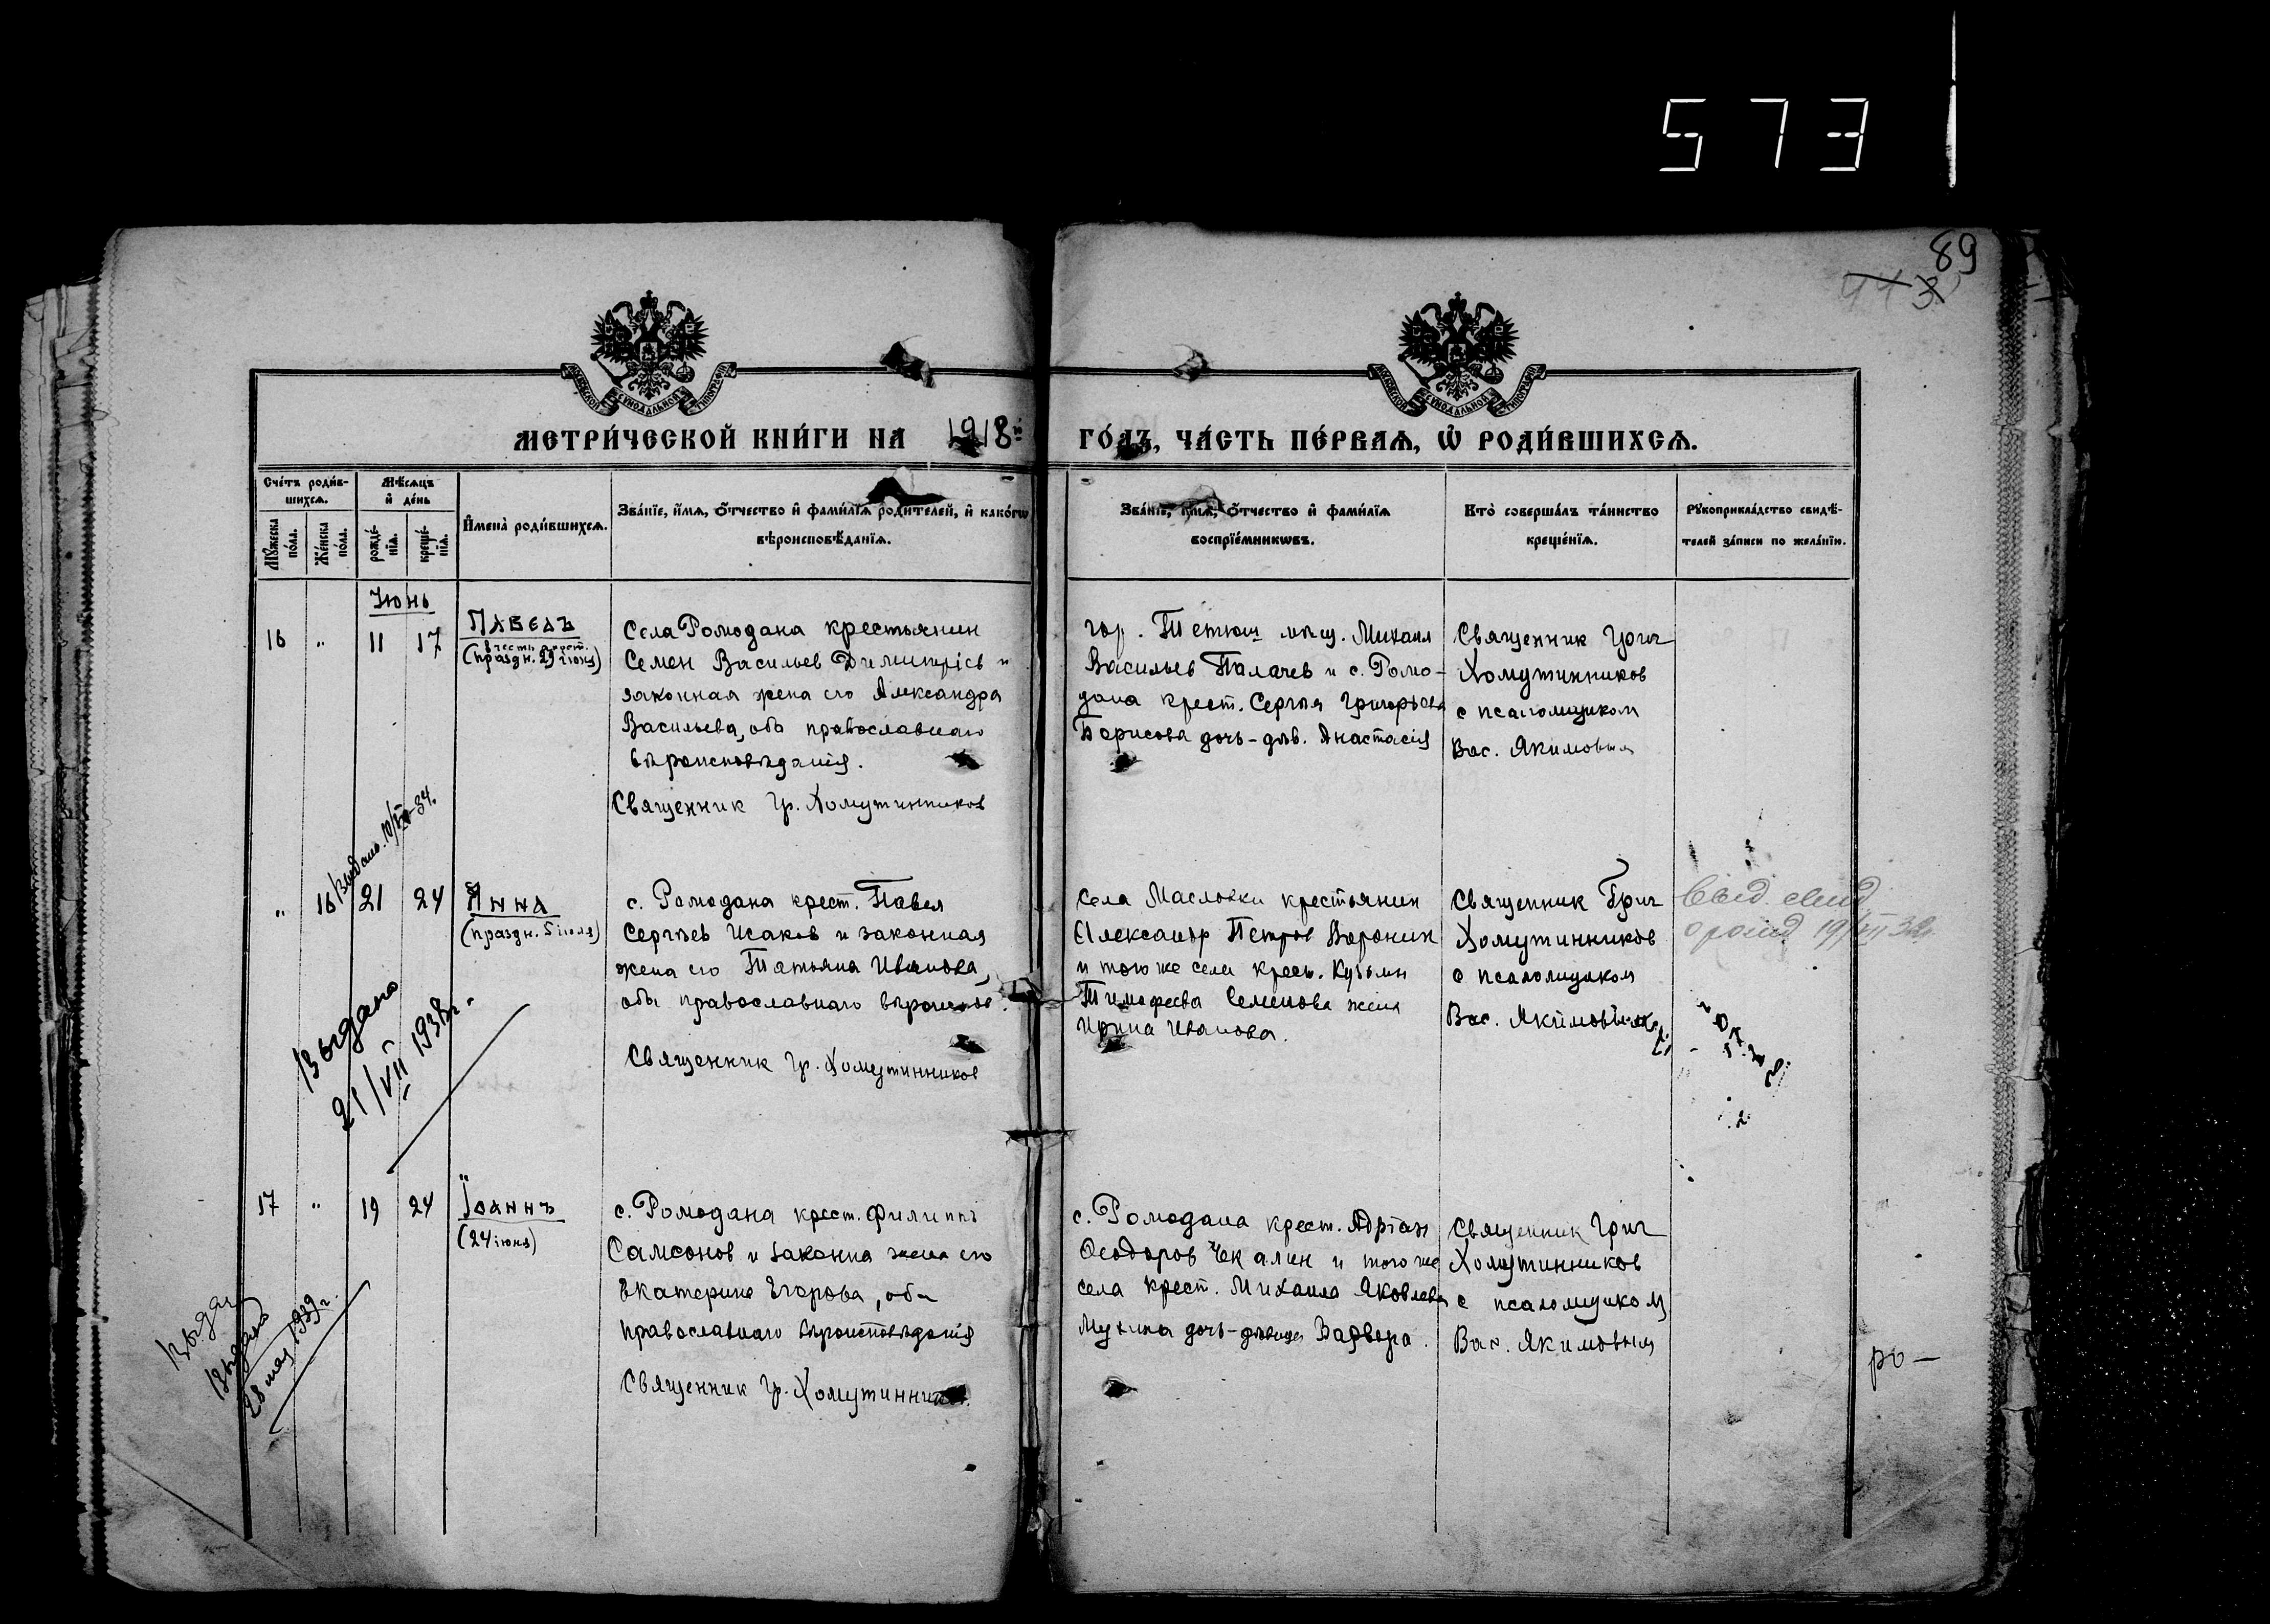 573
89
МЕТРИ́ЧЕСКОЙ КНИ́ГИ НА 1918 й ГО́ДЪ, ЧА́СТЬ ПЕ́РВАѦ, Ѡ҆ РОДИ́ВШИХСѦ.
Сче́тъ роди́в-
шихсѧ.
Мꙋ́жеска по́ла.
Же́нска по́ла.
Мѣ́сѧцъ и҆ де́нь
рожде́-
нїѧ.
креще́-
нїѧ.
И҆мена̀ роди́вшихсѧ.
Зва́нїе, и҆́мѧ, ѻ҆́тчество и҆ фами́лїѧ роди́телей, и҆ како́гѡ
вѣроисповѣ́данїѧ.
Зва́нїе, и҆́мѧ, ѻ҆́тчество и҆ фами́лїѧ
воспрїе́мникѡвъ.
Кто̀ соверша́лъ та́инство
креще́нїѧ.
Рꙋкоприкла́дство свидѣ́-
телей за́писи по жела́нїю.
Июнь
16 " 11 17
Павелъ
(праздн. 29 июня)
Села Ромодана крестьянин
Семен Васильев Димитріев и
законная жена его Александра
Васильева, оба православнаго
вѣроисповѣданія.
Священник Гр. Хомутинников
гор. Тетюш мѣщ. Михаил
Васильев Палачев и с. Ромо-
дана крест. Сергѣя Григорьева
Борисова дочь-дѣв. Анастасія
Священник Григ
Хомутинников
с псаломщиком
Вас. Якимовым
Выдано
" 16 21 24
Анна
(праздн. 5 июля)
с. Ромодана крест. Павел
Сергѣев Исаков и законная
жена его Татьяна Иванова,
оба православнаго вѣроиспов.
Священник Гр. Хомутинников
Села Масловки крестьянин
Александр Петров Воронин
и того же села крест. Кузьмы
Тимофеева Семенова жена
Ирина Иванова.
Священник Григ
Хомутинников
с псаломщиком
Вас. Якимовым
Выд. свид
о рожд 19/VII 32
Выдано
21/VII 1938г.
17 " 19 24
Іоаннъ
(24 июня)
с. Ромодана крест. Филиппъ
Самсонов и законна жена его
Екатерина Егорова, оба
православнаго вѣроисповѣданія
Священник Гр. Хомутинников.
с. Ромодана крест. Адріан
Ѳеодоров Чекалин и того же
села крест. Михаила Яковлева
Мукина дочь-дѣвица Варвара.
Священник Григ
Хомутинников
с псаломщиком
Вас. Якимовым
Выдан
Выдано
28 мая 1939 г.
ро-